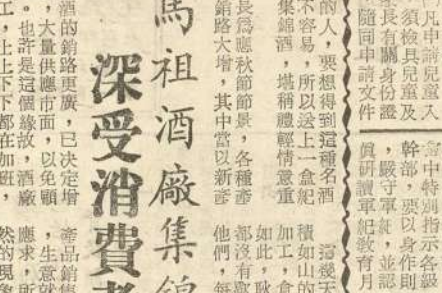 凡申請兒童入
須檢具兒童及
家長有關身份證
隨同申請文件
的人，要想得到這種名酒
不容易，所以送上一盒紀
集錦酒，堪稱禮輕情意重
長爲應秋節節景，各種產
銷路大增，其中當以新產
馬祖酒廠集錦
深受消費者
酒的銷路更廣，已決定增
，大量供應市面，以免顧
。也許是這個緣故，酒廠
工，上上下下都在加班，
令中特別指示各級
幹部，要以身作則
，嚴守軍紀，並認
眞研讀軍紀教育月
這幾天
積如山的
加工，倉
如此，耿
都沒有歇
他們，每
產品銷售
，生意就
應求，所
然的現象